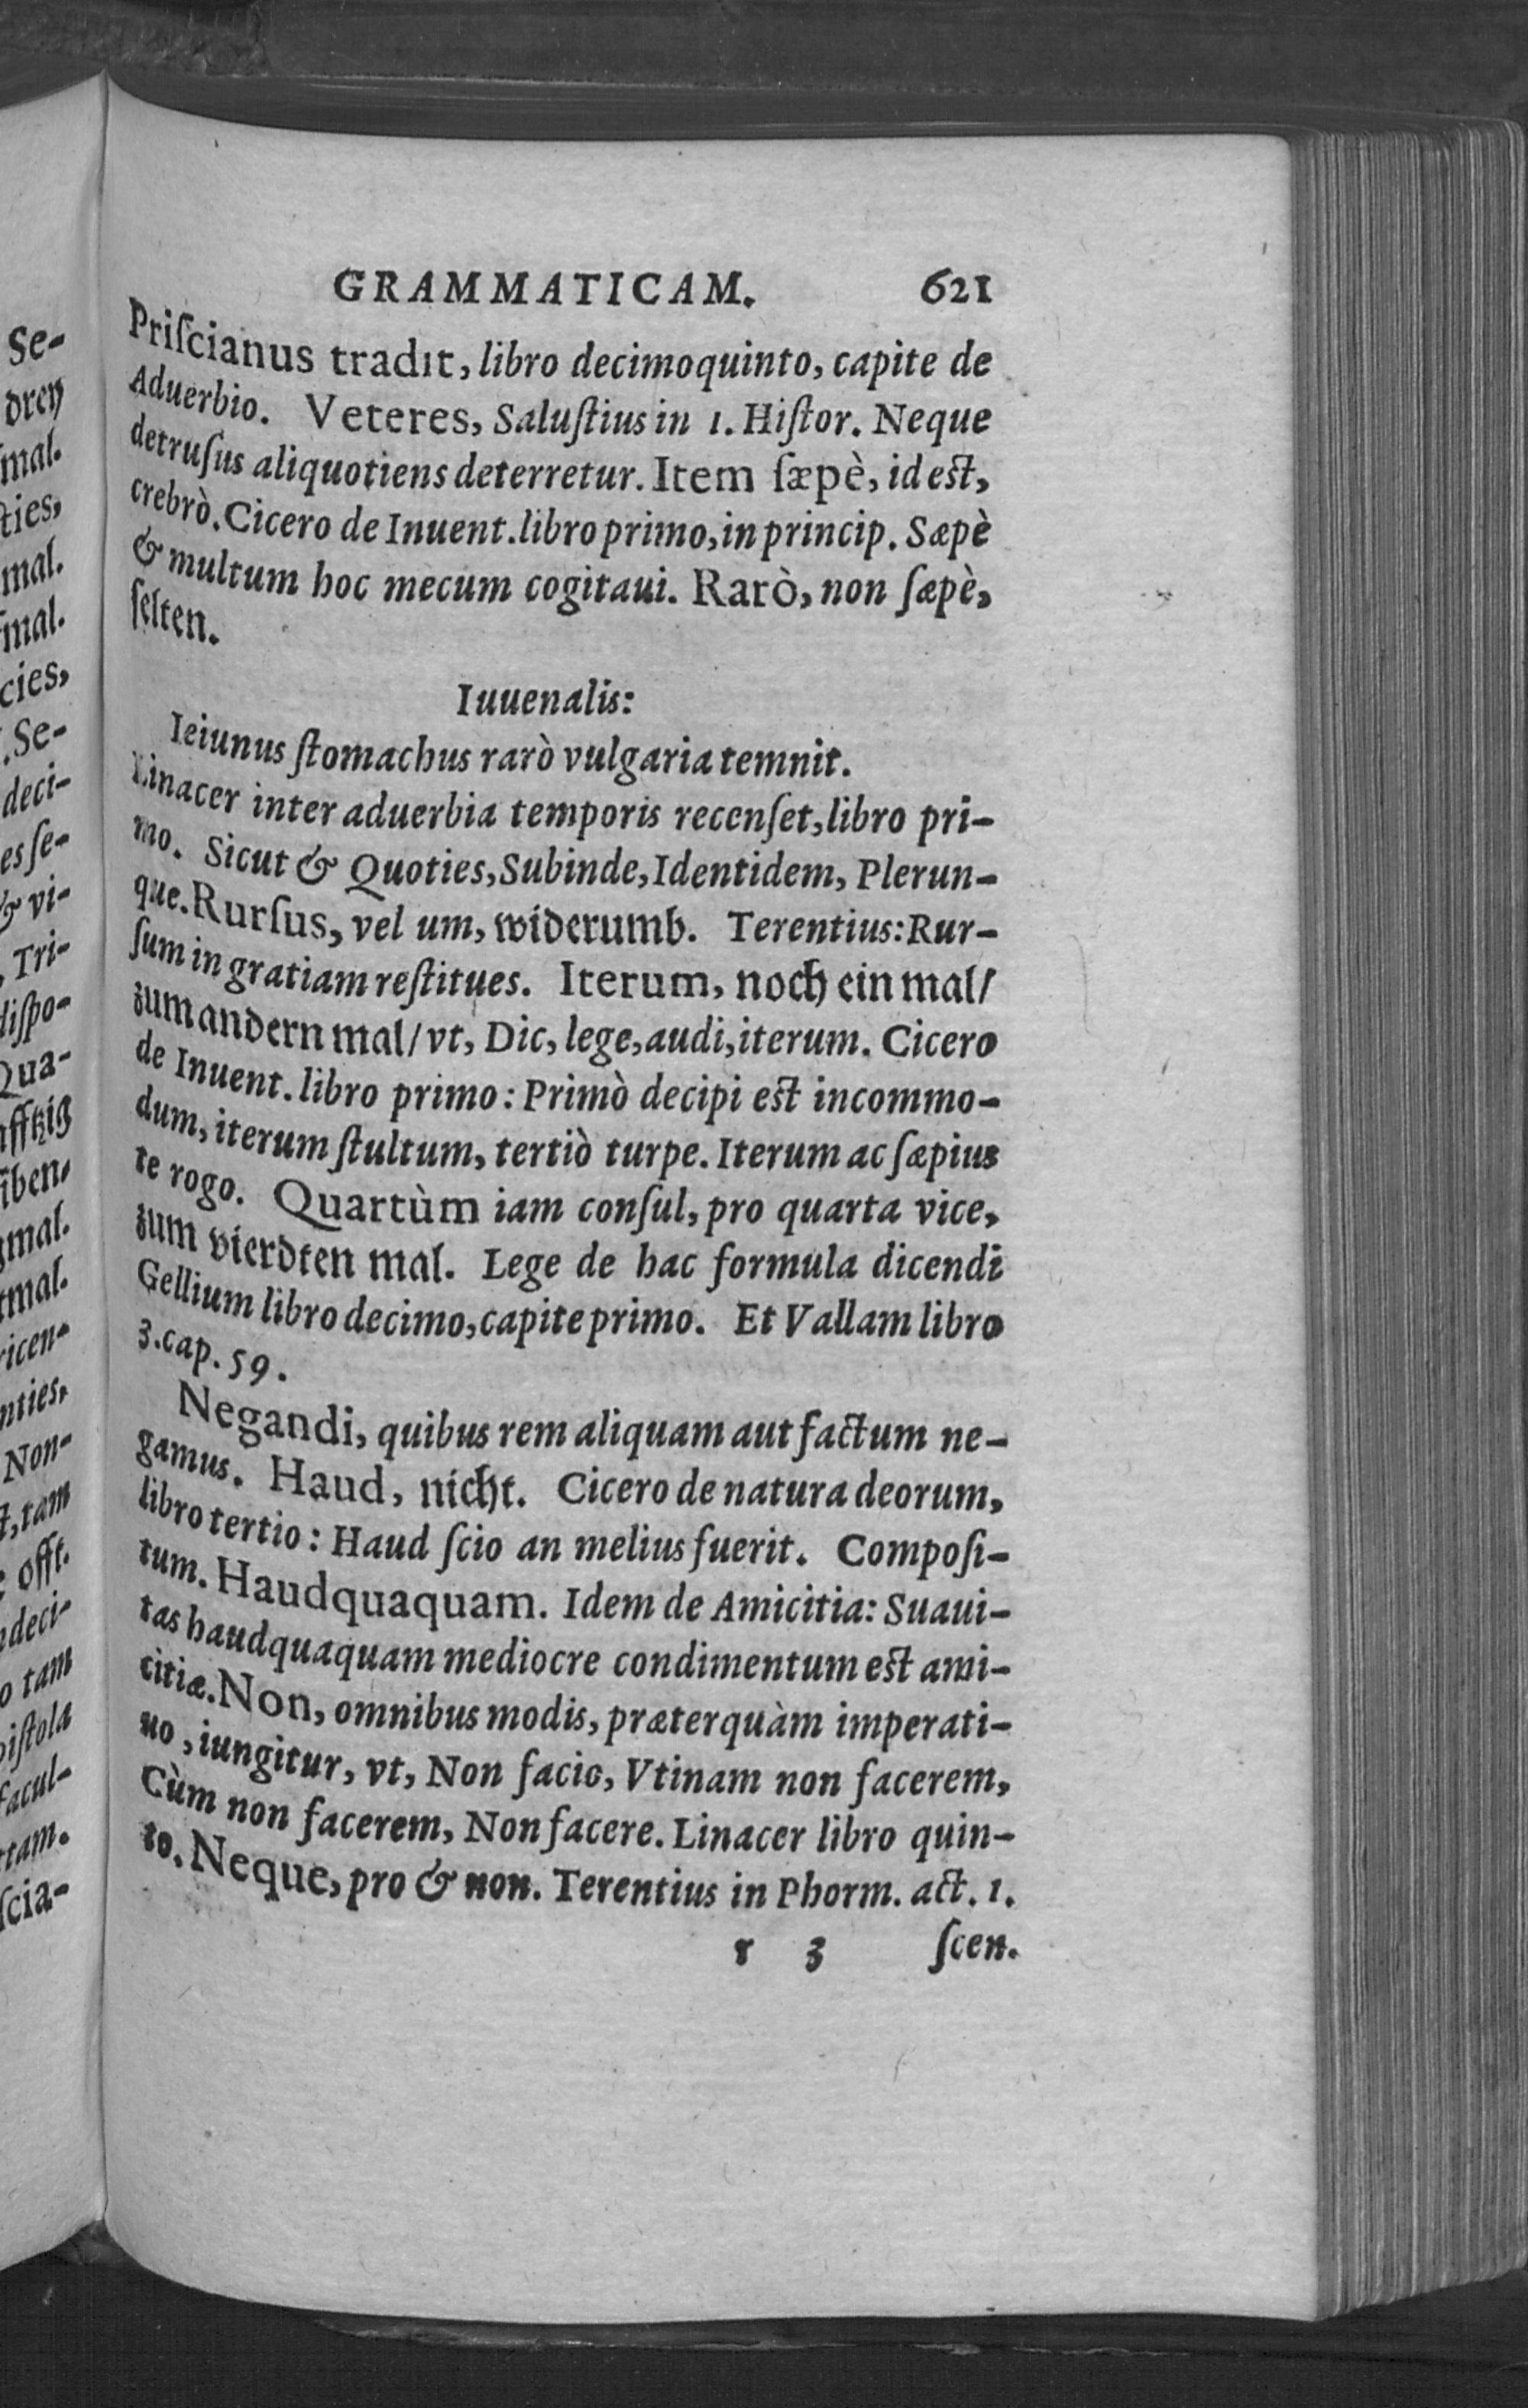 GRAMMATICAM. 621
Priſcianus tradit, libro decimoquinto, capite de
Aduerbio. Veteres, Saluſtius in 1. Hiſtor. Neque
detruſus aliquotiens deterretur. Item ſæpè, id est,
crebrò. Cicero de Inuent. libro primo, in princip. Sæpè
& multum hoc mecum cogitaui. Rarò, non ſæpè,
ſelten.
Iuuenalis:
Ieiunus ſtomachus rarò vulgaria temnit.
Linacer inter aduerbia temporis recenſet, libro pri-
mo. Sicut & Quoties, Subinde, Identidem, Plerun-
que. Rurſus, vel um, widerumb. Terentius: Rur-
ſum in gratiam reſtitues. Iterum, noch ein mal/
zum andern mal/ vt, Dic, lege, audi, iterum. Cicero
de Inuent. libro primo: Primò decipi est incommo-
dum, iterum ſtultum, tertiò turpe. Iterum ac ſæpius
te rogo. Quartùm iam conſul, pro quarta vice,
zum vierdten mal. Lege de hac formula dicendi
Gellium libro decimo, capite primo. Et Vallam libro
3. cap. 59.
Negandi, quibus rem aliquam aut factum ne-
gamus. Haud, nicht. Cicero de natura deorum,
libro tertio: Haud ſcio an melius fuerit. Compoſi-
tum. Haudquaquam. Idem de Amicitia: Suaui-
tas haudquaquam mediocre condimentum est ami-
citiæ. Non, omnibus modis, præterquàm imperati-
uo, iungitur, vt, Non facio, Vtinam non facerem,
Cùm non facerem, Non facere. Linacer libro quin-
to. Neque, pro & non. Terentius in Phorm. act. 1.
r 3 ſcen.